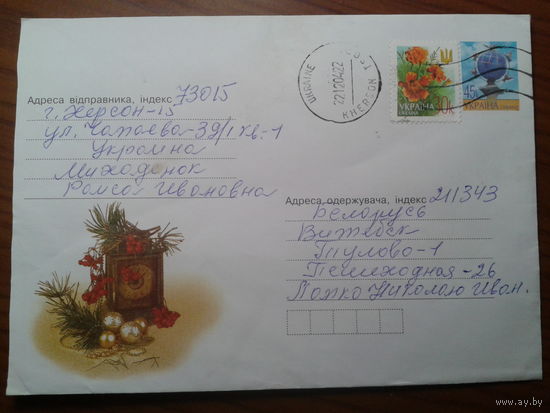 UKRAINE
221204 22
KHERSON
УКРАЇНА
30к
45
УКРАЇНА
Адреса відправника, індекс 73015
г. Херсон-15
ул. Чапаева-39/1 кв-1
Украина
Раиса Ивановна
Адреса одержувача, індекс 211343
Беларусь
Витебск
Тулово-1
Пешеходная-26
Ложко Николаю Иван.
www.ay.by